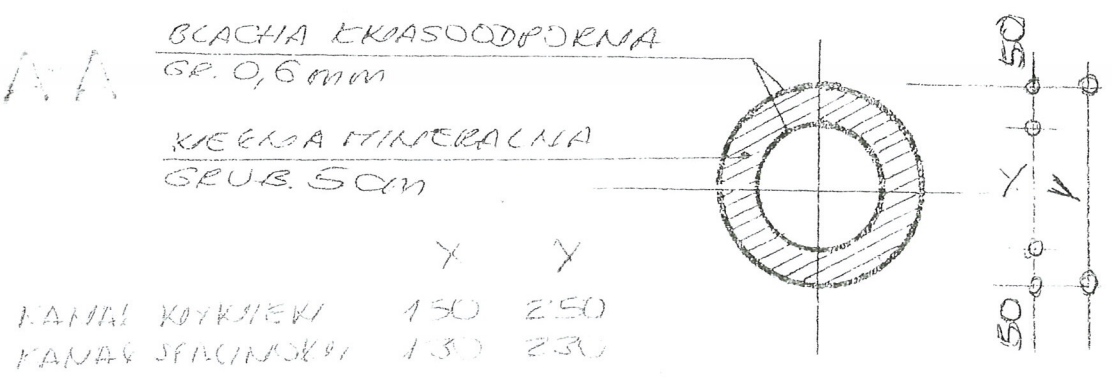 A-A
BLACHA KWASOODPORNA
GR. 0,6 mm
WEŁNA MINERALNA
GRUB. 5 cm
X Y
KANAŁ WYWIEWN 150 250
KANAŁ SPALINOWY 130 230
50
X
Y
50